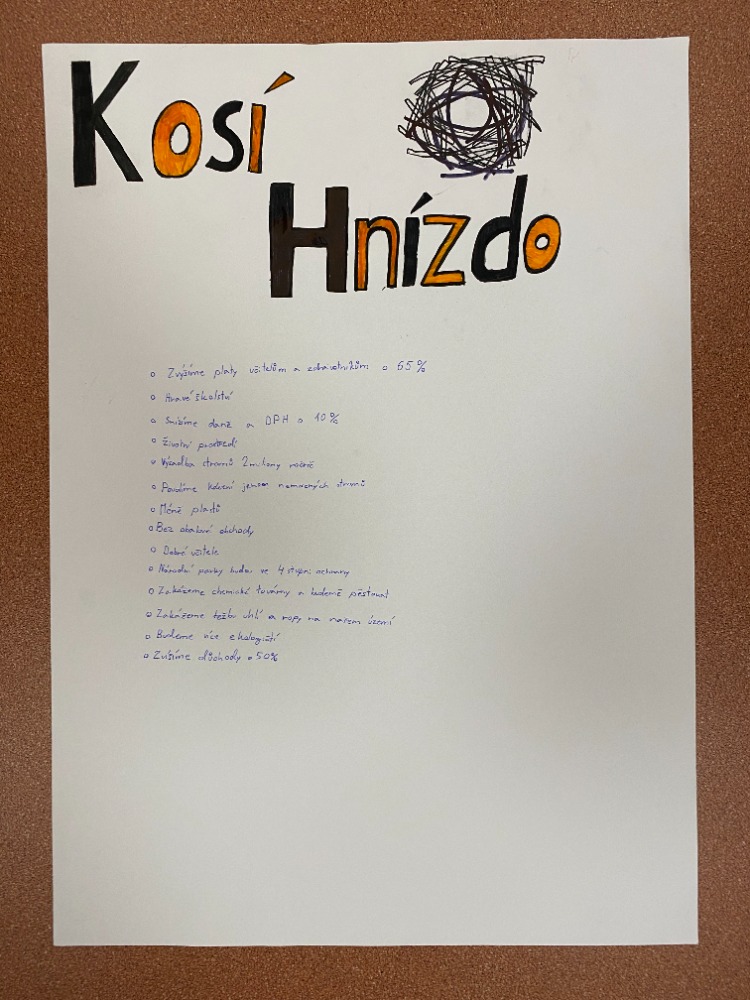 Kosí
Hnízdo
Zvýšíme platy učitelům a zdravotníkům o 65%
Hravé školství
Snížíme daně a DPH o 10%
Životní prostředí
Výsadba stromů 2 miliony ročně
Povolíme kácení jenom nemocných stromů
Méně plastů
Bez obalové obchody
Dobré učitele
Národní parky budou ve 4 stupni ochrany
Zakážeme chemické továrny a budeme pěstovat
Zakážeme težbu uhlí a ropy na našem území
Budeme více ekologičtí
Zvíšíme důchody o 50%